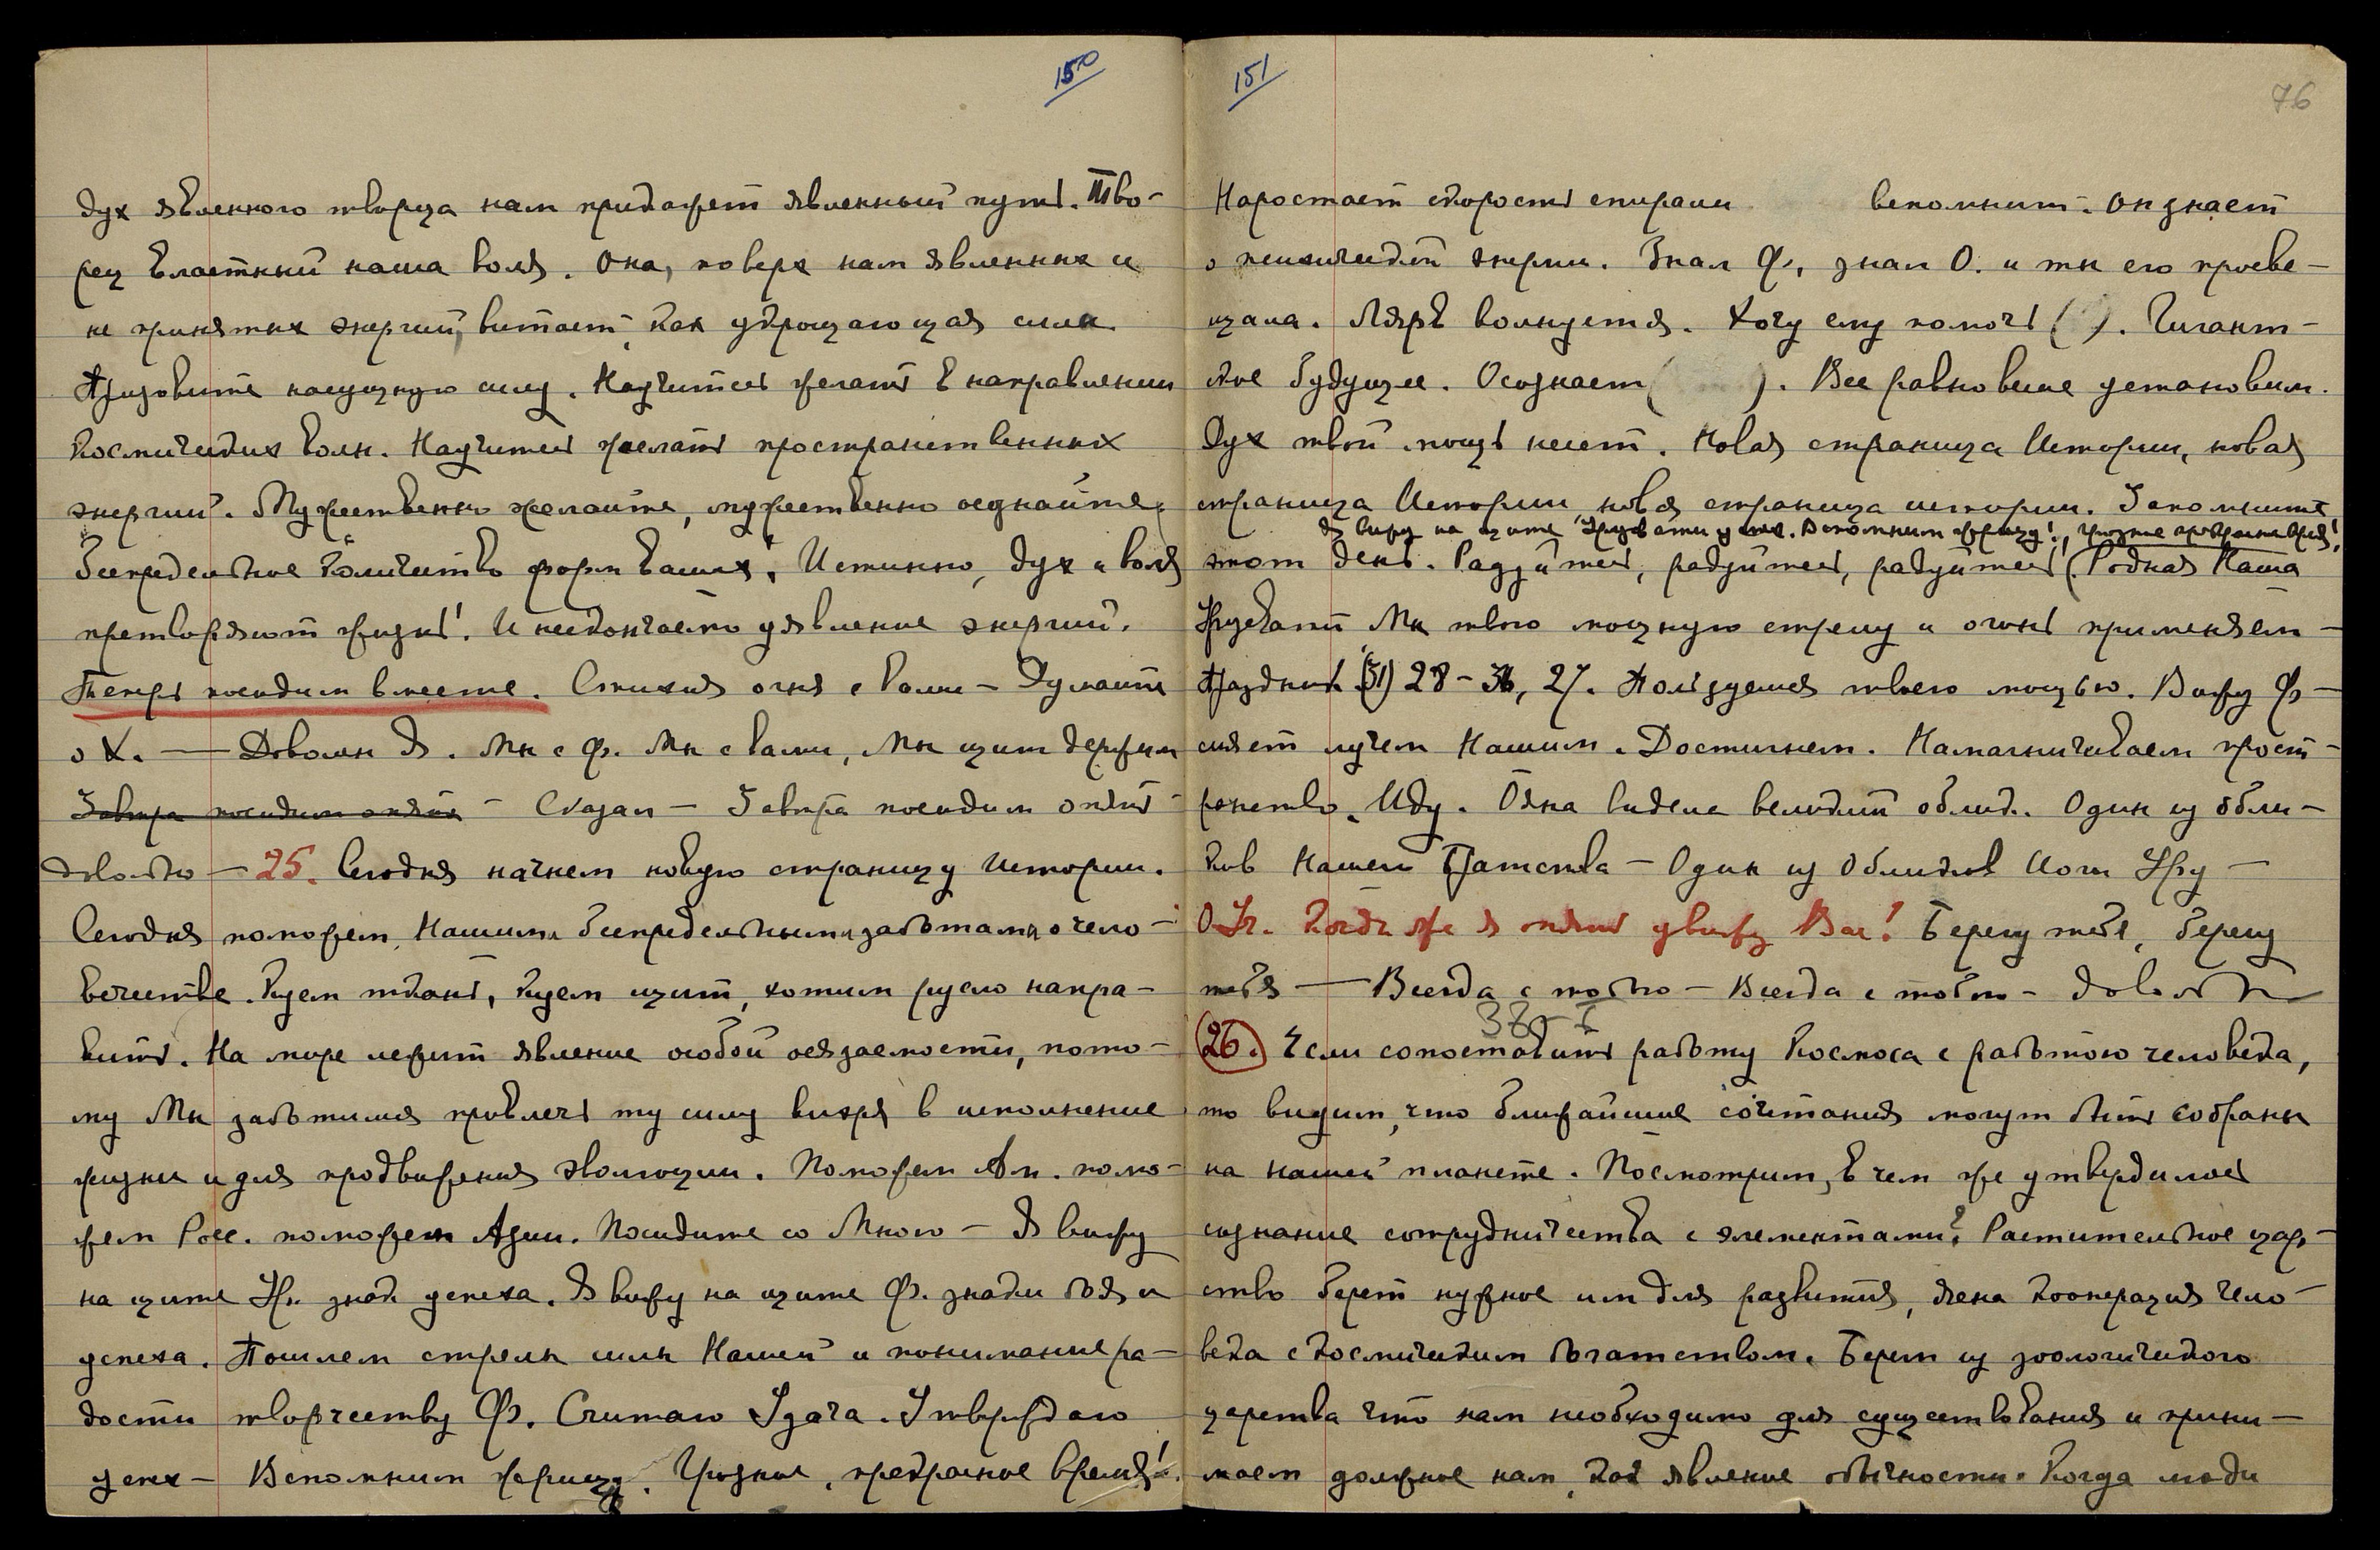 150
дух явленного творца нам придожет явленный путь. Тво-
рец властный наша воля. Она, поверх нам явленных и
не принятых энергий, витает, как укрощающая сила.
Призовите насущную силу. Научитесь желать в направлении
космических волн. Научитесь желать пространственных
энергий. Мужественно желайте, мужественно осознайте
беспредельное количество форм ваших. Истинно, дух и воля
претворяют жизнь! И нескончаемо уявление энергий.
Теперь посидим вместе. Стихия огня с Вами – Думайте
о Х. — Доволен Я. Мы с Ф. Мы с вами, Мы щит держим
Завтра посидим опять – Сказал – Завтра посидим опять –
довольно – 25. Сегодня начнем новую страницу Истории.
Сегодня поможем Нашими беспредельными заботами о чело-
вечестве. Куем ткань, куем щит, хотим русло напра-
вить. На мире лежит явление особой осязаемости, пото-
му Мы заботимся привлечь ту силу вихря в исполнение
жизни и для продвижения эволюции. Поможем Ам. помо-
жем Росс. поможем Азии. Посидите со Мною – Я вижу
на щите Ур. знак успеха. Я вижу на щите Ф. знаки боя и
успеха. Пошлем стрелы силы Нашей и понимание ра-
дости творчеству Ф. Считаю Удача. Утверждаю
успех – Вспомним жрицу. Грозное, прекрасное время!
151
76
Наростает скорость спирали вспомнит. Он знает
о психической энергии. Знал Ф., знал О. и ты его просве-
щала. Лярв волнуется. Хочу ему помочь ( ). Гигант-
ское будущее. Осознает ( ). Все равновесие установим.
Дух твой мощь несет. Новая страница Истории, новая
страница Истории, новая страница истории. Запомните
Я вижу на щите Урусвати успех. Вспомним жрицу! Грозное прекрасное время!
этот день. Радуйтесь, радуйтесь, радуйтесь (Родная Наша
Урусвати Мы твою мощную стрелу и огонь применяем –
Праздник (31) 28 – 36, 27. Пользуемся твоею мощью. Вижу Ф –
сияет лучем Нашим. Достигнем. Намагничиваем прост-
ранство. Иду. Ояна видела великий облик. Один из обли-
ков Нашего Братства – Один из Обликов Йоги Уру –
О Уч. Когда же я опять увижу Вас! Берегу тебя, берегу
тебя — Всегда с тобою – Всегда с тобою – довольно
26. Если сопоставить работу Космоса с работою человека,
то видим, что ближайшие сочетания могут быть собраны
на нашей планете. Посмотрим, в чем же утвердилось
сознание сотрудничества с элементами? Растительное цар-
ство берет нужное им для развития, ясна кооперация чело-
века с космическим богатством. Берем из зоологического
царства что нам необходимо для существования и прини-
маем должное нам, как явление обычности. Когда люди